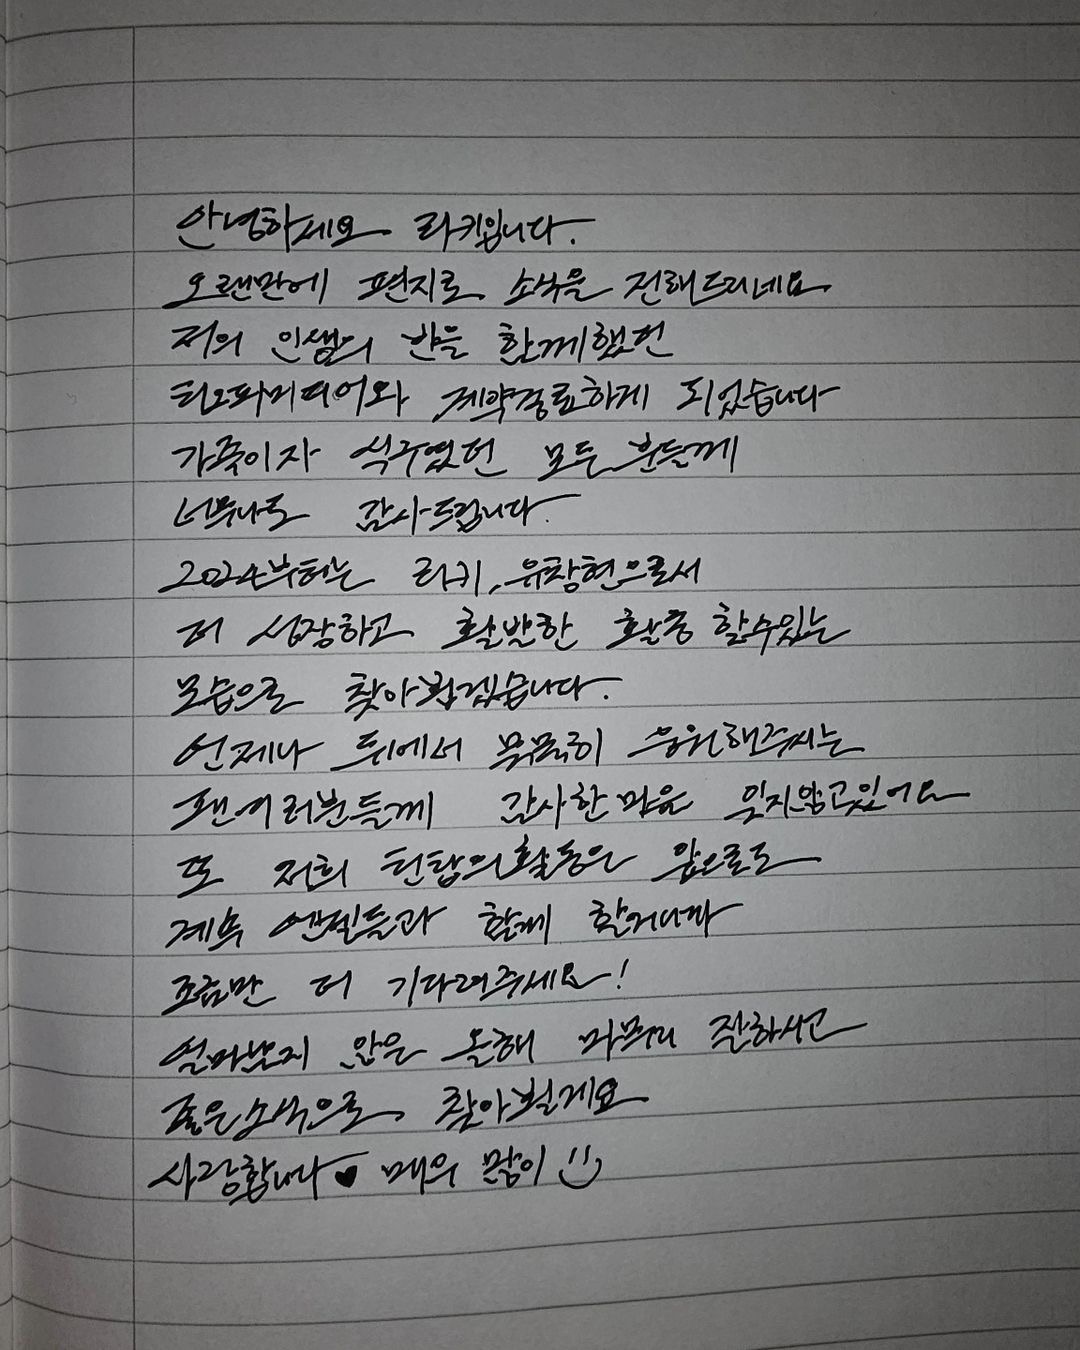 안녕하세요 리키입니다.
오랜만에 편지로 소식을 전해드리네요
저의 인생의 반을 함께했던
티오피미디어와 계약종료하게 되었습니다
가족이자 식구였던 모든 분들께
너무나도 감사드립니다.
2024부터는 리키, 유창현으로서
더 성장하고 활발한 활동 할수있는
모습으로 찾아뵙겠습니다.
언제나 뒤에서 묵묵히 응원해주시는
팬여러분들께 감사한 마음 잊지않고있어요
또 저희 틴탑의 활동은 앞으로도
계속 엔젤들과 함께 할거니까
조금만 더 기다려주세요!
얼마남지 않은 올해 마무리 잘하시고
좋은소식으로 찾아뵐게요
사랑합니다♥ 매우 많이 :)